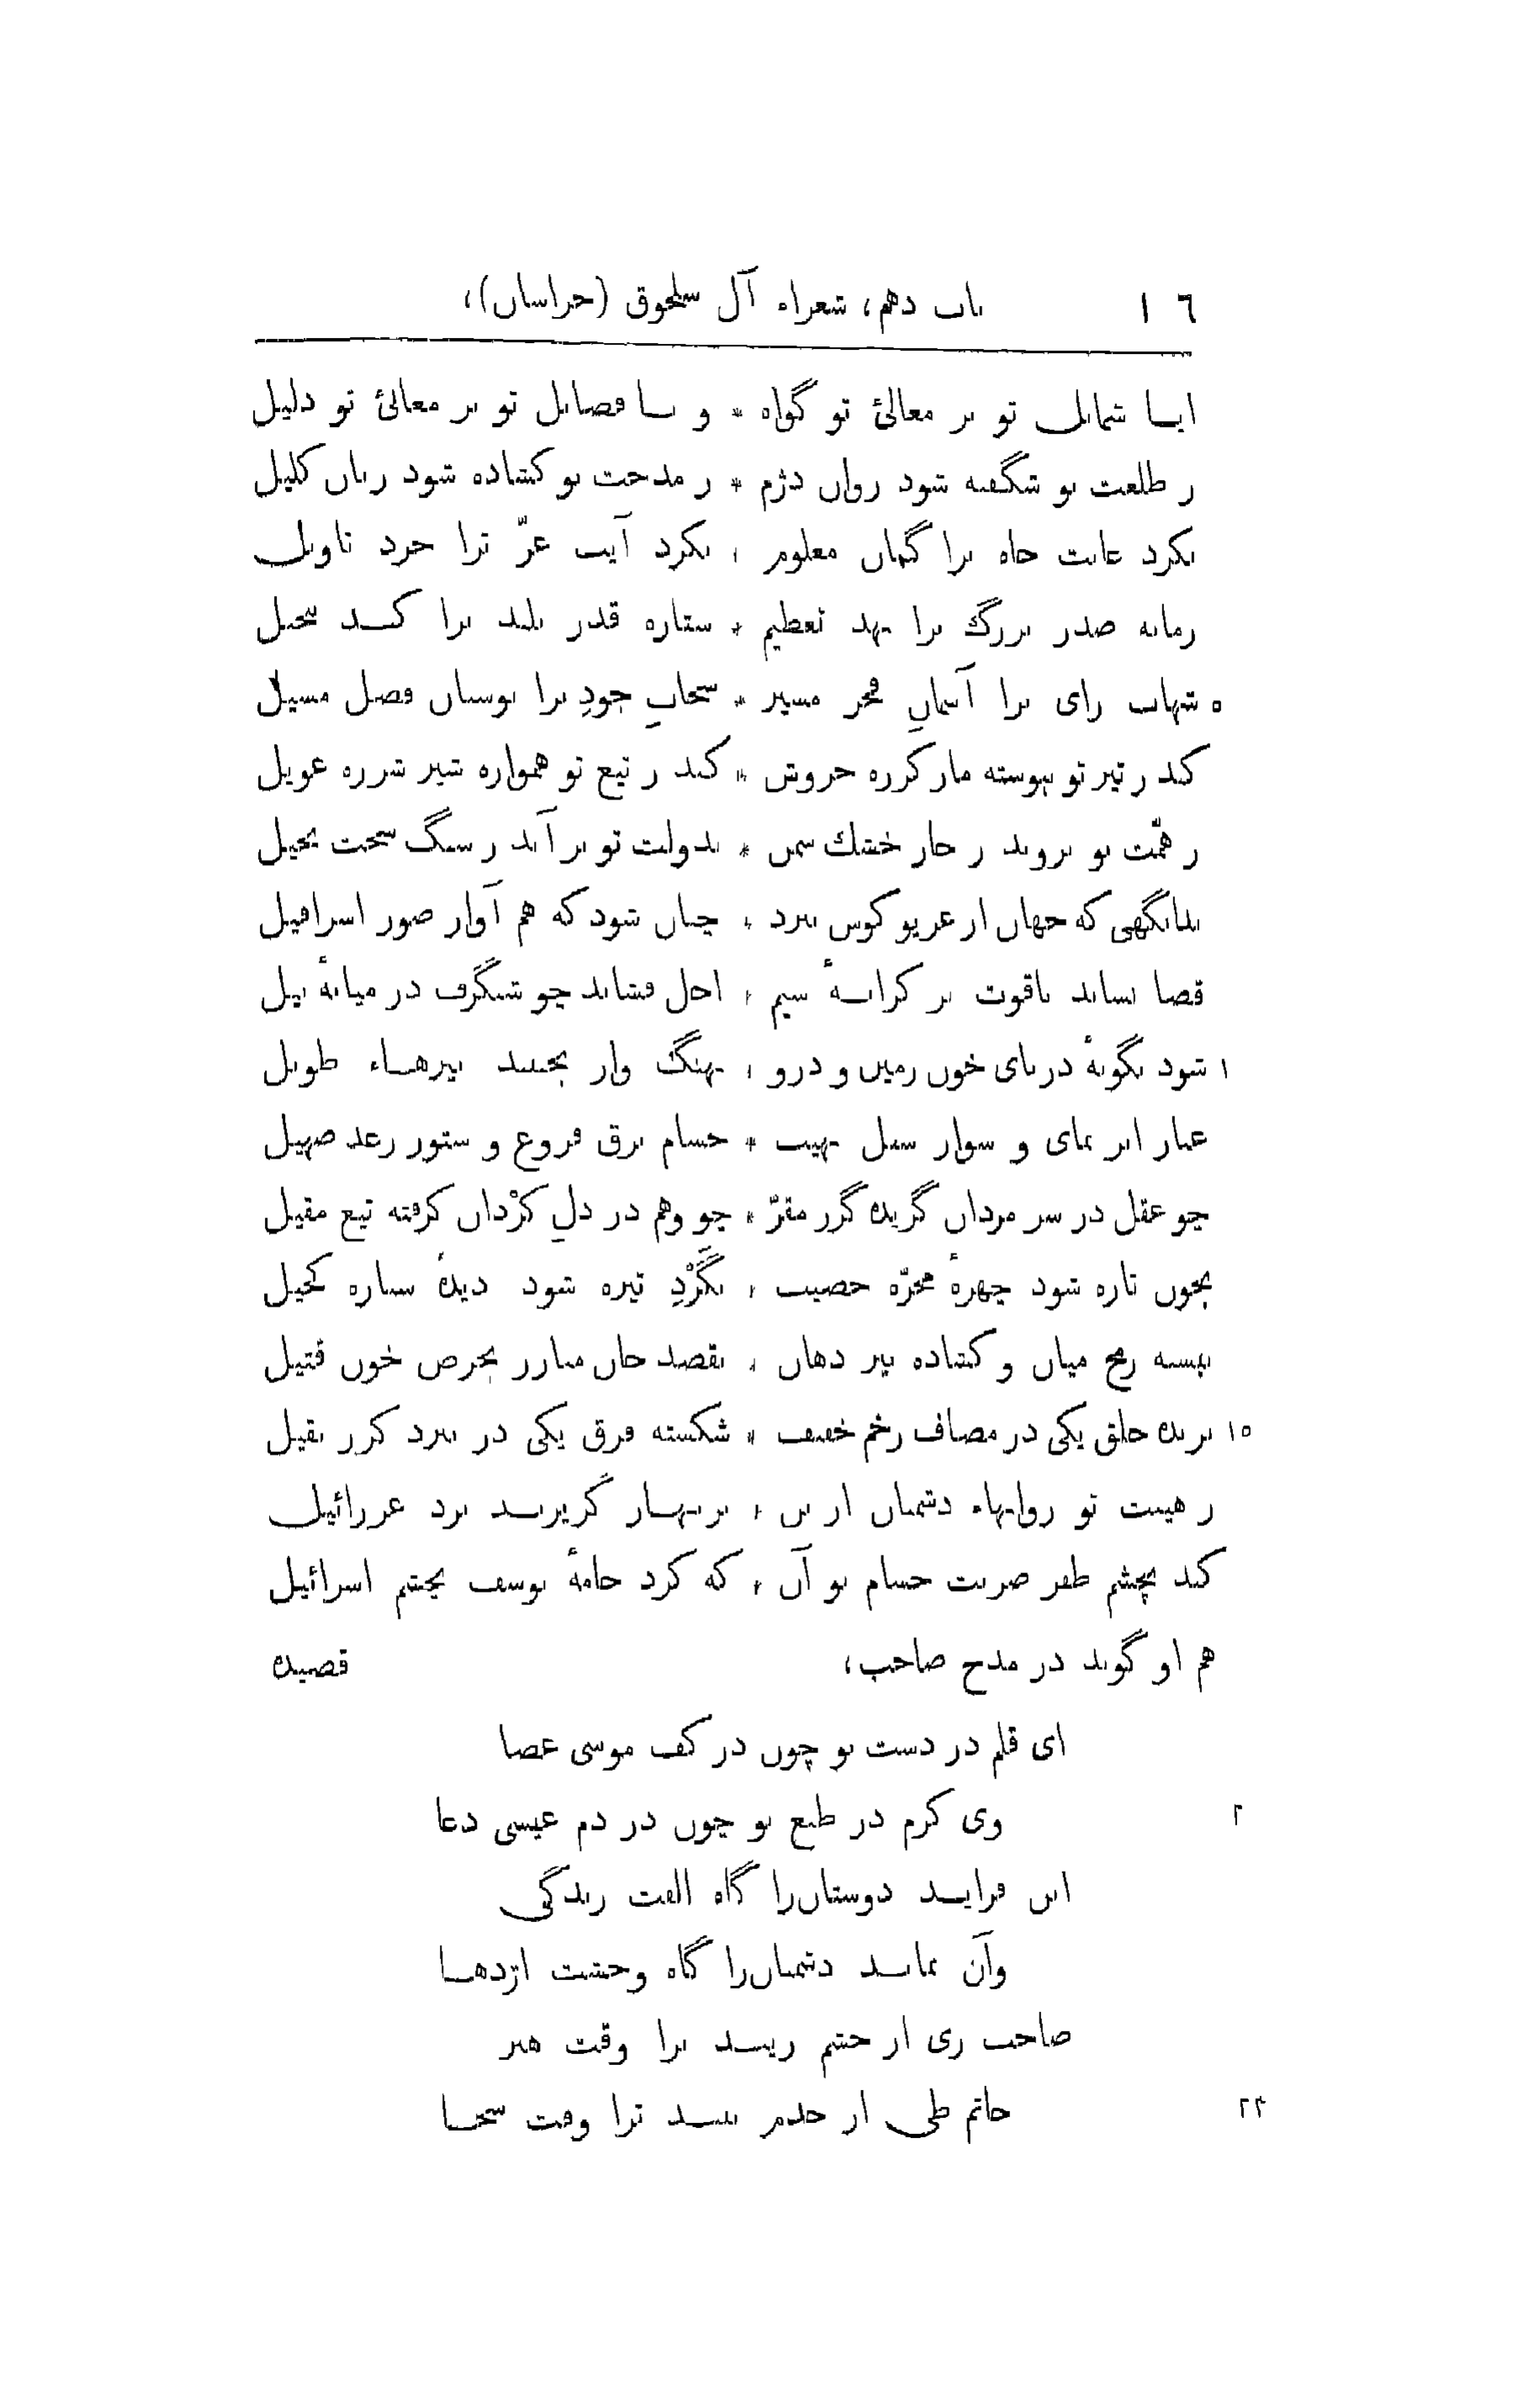 ۱٠٦ باب دهم، شعراء آل سلجوق (خراسان)،
ایا شمایل تو بر معالئ تو گواه * و یا فضایل تو بر معالئ تو دلیل
ز طلعت تو شگفته شود روان دژم * ز مدحت تو کشاده شود زبان کلیل
نکرد غایت جاه ترا گمان معلوم * نکرد آیت عزّ ترا خرد تاویل
زمانه صدر بزرگ ترا نهد تعظیم * ستاره قدر بلند ترا کند تبجیل
٥ شهاب رای ترا آسمانِ فخر مسیر * سحابِ جودِ ترا بوستان فضل مسیل
کند ز تیر تو پیوسته مار کرزه خروش * کند ز تیغ تو همواره شیر شرزه عویل
ز همّت تو بروید ز خار خشك سمن * بدولت تو بر آید ز سنگ سخت نخیل
بدانگهی که جهان از غریو کوس نبرد * چنان شود که هم آواز صور اسرافیل
قضا نساند یاقوت بر کرانهٔ سیم * اجل فشاند چو شنگرف در میانهٔ نیل
۱٠ شود بگونهٔ دریای خون زمین و درو * نهنگ وار بجنبند نیزهاء طویل
غبار ابر نمای و سوار سیل نهیب * حسام برق فروغ و ستور رعد صهیل
چو عقل در سر مردان گزیده گرز مقرّ * چو وهم در دلِ کُرْدان کرفته تیغ مقیل
بخون تازه شود چهرهٔ مجرّه خضیب * بگَرْدِ تیره شود دیدهٔ ستاره کحیل
ببسته رمح میان و کشاده تیر دهان * بقصد جان مبارز بحرص خون قتیل
۱٥ بریده حلق یکی در مصاف زخم خفیف * شکسته فرق یکی در نبرد کرز ثقیل
ز هیبت تو روانهاء دشمنان از تن * بزینهار گریزند نزد عزرائیل
کند بچشم ظفر ضربت حسام تو آن * که کرد جامهٔ یوسف بچشم اسرائیل
هم او گوید در مدح صاحب، قصیده
ای قلم در دست تو چون در کف موسی عصا
۲٠ وی کرم در طبع تو چون در دم عیسی دعا
این فزاید دوستان‌را گاه الفت زندگی
وآن نماید دشمنان‌را گاه وحشت اژدها
صاحب ری از حشم زیبد ترا وقت هنر
۲٤ حاتم طی از خدم زیبد ترا وقت سخا